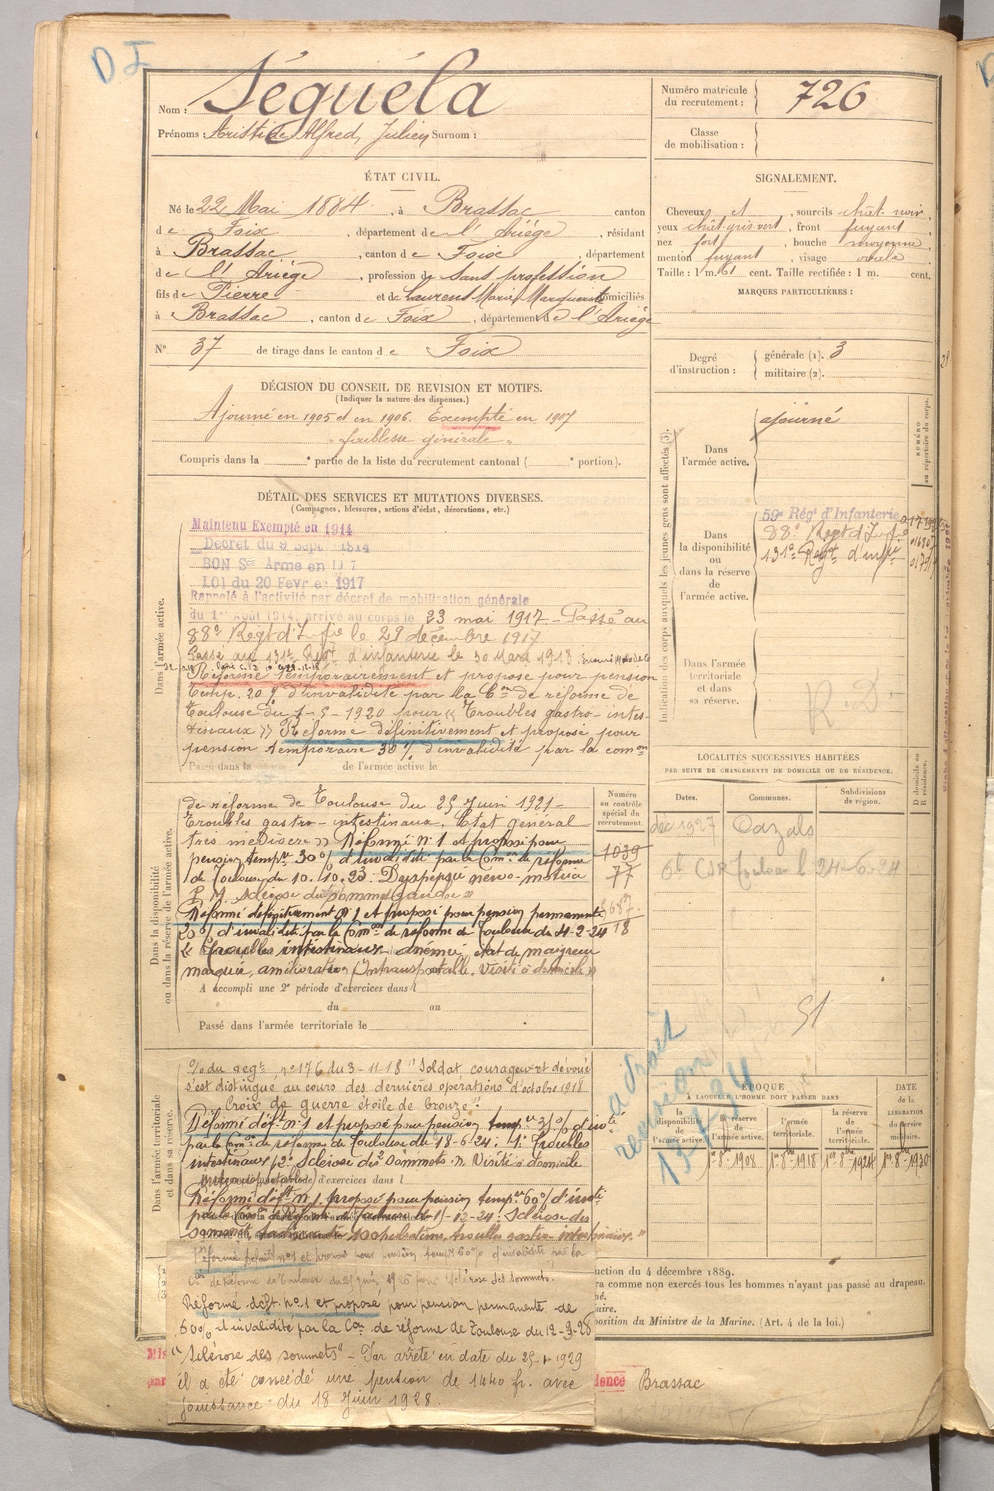 D I
Nom : Séguéla
Prénoms : Aristide Alfred, Julien Surnom :
ÉTAT CIVIL.
Né le 22 Mai 1884, à Brassac canton
de Foix, département de l'Ariège, résidant
à Brassac, canton de Foix, département
de l'Ariège, profession de sans profession
fils de Pierre et de Laurent Marie Marguerite domiciliés
à Brassac, canton de Foix, département de l'Ariège
N° 37 de tirage dans le canton de Foix
DÉCISION DU CONSEIL DE REVISION ET MOTIFS.
(Indiquer la nature des dispenses.)
Ajourné en 1905 et en 1906. Exempté en 1907
"faiblesse générale"
Compris dans la e partie de la liste du recrutement cantonal ( e portion).
DÉTAIL DES SERVICES ET MUTATIONS DIVERSES.
(Campagnes, blessures, actions d'éclat, décorations, etc.)
Dans l'armée active.
Maintenu Exempté en 1914
Décret du 9 Sept 1914
BON Sce Armé en 1917
LOI du 20 Février 1917
Rappelé à l'activité par décret de mobilisation générale
du 1er Août 1914, arrivé au corps le 23 mai 1917 - Passé au
88e Regt d'Infie le 28 décembre 1917
Passé au 131e Regt d'infanterie le 30 Mars 1918.
Réformé temporairement et proposé pour pension
Temp. 20 % d'invalidité par la Con de réforme de
Toulouse du 1-5-1920 pour « Troubles gastro-intes-
tinaux » Réforme définitivement et proposé pour
pension temporaire 30 % d'invalidité par la comon
Passé dans la de l'armée active le
Dans la disponibilité ou dans la réserve de l'armée active.
de réforme de Toulouse du 25 Juin 1921-
Troubles gastro-intestinaux. Etat général
très médiocre » Réformé n°1 et proposé pour
pension tempre 30% d'invalidité par la Comon de réforme
de Toulouse du 10.10.23: Dyspepsie nervo-motrice
P. M. sclérose du sommet gauche »
Réformé définitivement n°1 et proposé pour pension permanente
20% d'invalidité par la Comon de réforme de Toulouse du 4-2-24
« Troubles intestinaux anémie, état de maigreur
marquée, amélioration (Intransportable. Visite à domicile »
A accompli une 2e période d'exercices dans l
du au
Passé dans l'armée territoriale le
Dans l'armée territoriale et dans sa réserve.
O/ du regt, n°176 du 3-11-18 "Soldat courageux et dévoué
s'est distingué au cours des dernières opérations d'octobre 1918
Croix de guerre étoile de bronze".
Réformé déft n°1 et proposé pour pension tempre 35% d'invté
par la Comon de réforme de Toulouse du 18-6-24: 1° Troubles
intestinaux; 2° Sclérose des Sommets. Visite à domicile
Réformé déft n°1, proposé pour pension tempre 60% d'invté
par la Comon de Réforme de Toulouse du 15-12-24: Sclérose des
sommets
Réformé défint n°1 et proposé pour pension tempre 60% d'invalidité par la
Con de Réforme de Toulouse du 25 juin 1926 pour Sclérose des sommets.
Réformé déft. n°1 et proposé pour pension permanente de
60% d'invalidité par la Con de réforme de Toulouse du 12-9-28
"Sclérose des sommets" - Par arrêté en date du 25-1-1929
il a été concédé une pension de 1440 fr. avec
jouissance du 18 Juin 1928.
Numéro au contrôle spécial du recrutement.
1039
77
18
Numéro matricule du recrutement : 726
Classe de mobilisation :
SIGNALEMENT.
Cheveux et, sourcils chât. noir,
yeux chât. gris vert, front fuyant
nez fort, bouche moyenne
menton fuyant, visage ovale
Taille : 1 m. 61 cent. Taille rectifiée : 1 m. cent.
MARQUES PARTICULIÈRES :
Degré d'instruction : générale (1). 3
militaire (2).
Indication des corps auxquels les jeunes gens sont affectés (3).
NUMÉRO au répertoire du corps.
Dans l'armée active.
ajourné
Dans la disponibilité ou dans la réserve de l'armée active.
59e Régt d'Infanterie
88e Regt d'Infie
131e Regt d'infie
Dans l'armée territoriale et dans sa réserve.
LOCALITÉS SUCCESSIVES HABITÉES
PAR SUITE DE CHANGEMENTS DE DOMICILE OU DE RÉSIDENCE.
Dates. Communes. Subdivisions de région. D domicile ou R résidence.
1927 Cazals
24-6-24
a droit
revision
13-7-34
ÉPOQUE
À LAQUELLE L'HOMME DOIT PASSER DANS
la disponibilité de l'armée active. la réserve de l'armée active. l'armée territoriale. la réserve de l'armée territoriale. DATE de la LIBÉRATION du service militaire.
1er 8bre 1908 1er 8bre 1918 1er 8bre 1924 1er 8bre 1930
uction du 4 décembre 1889.
ra comme non exercés tous les hommes n'ayant pas passé au drapeau.
né.
aire.
position du Ministre de la Marine. (Art. 4 de la loi.)
dence Brassac